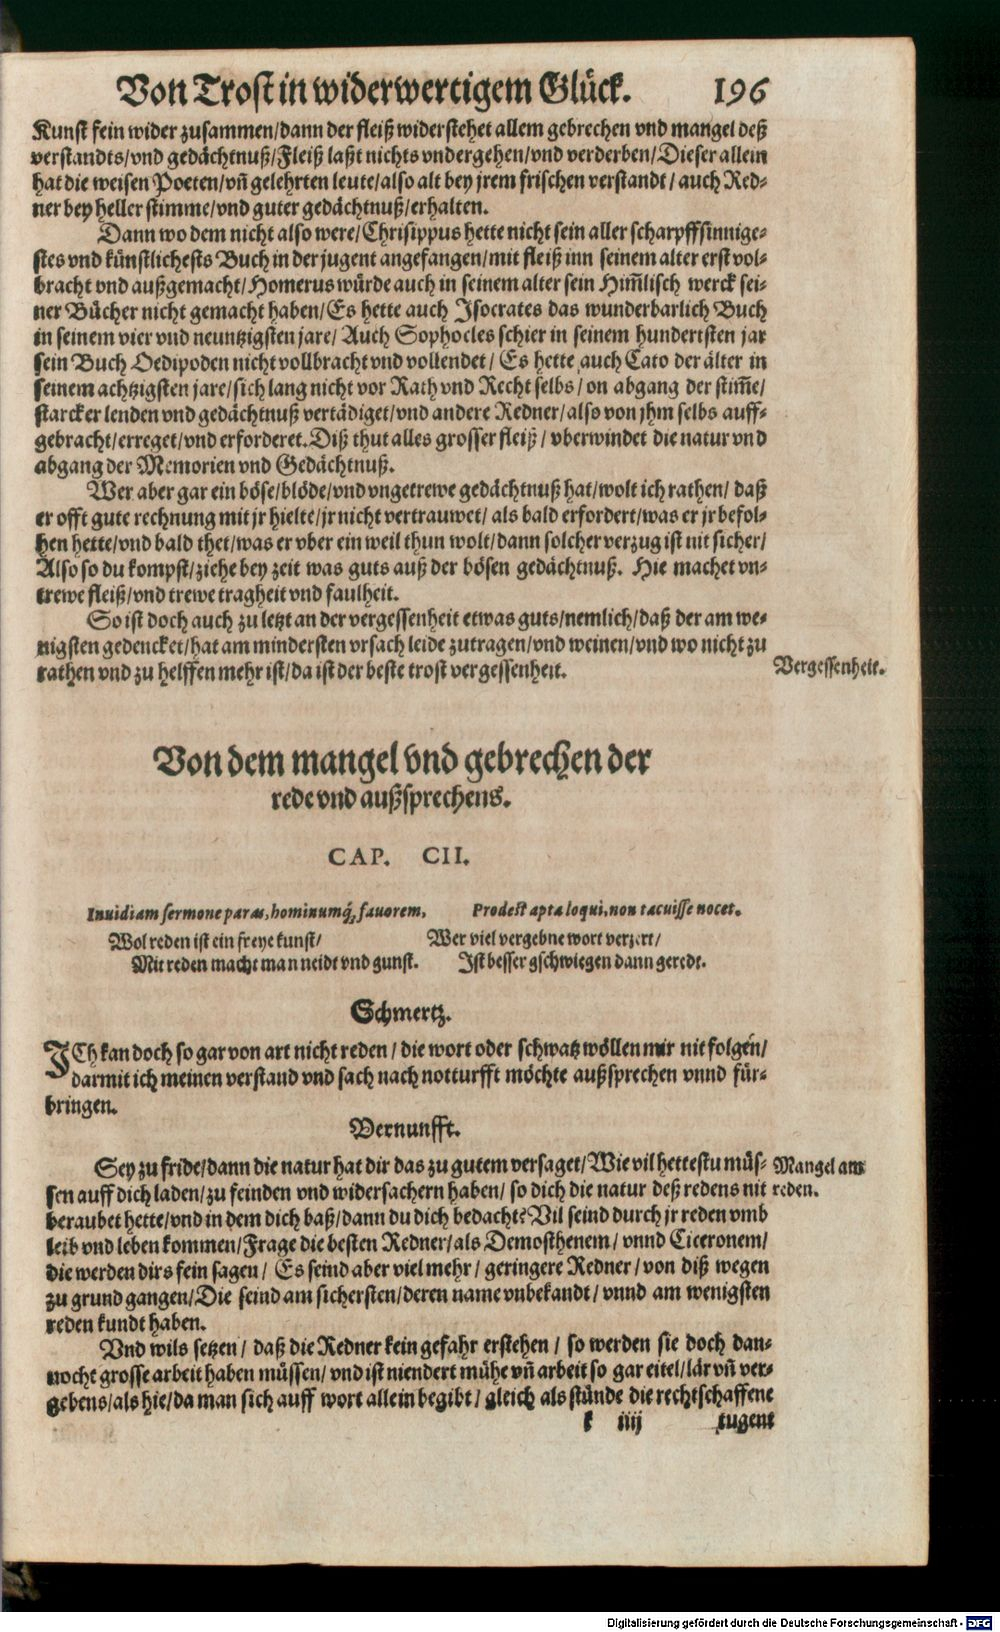 Von Trost in widerwertigem Glück. 196
Kunst fein wider zusammen/dann der fleiß widerstehet allem gebrechen vnd mangel deß
verstandts/vnd gedächtnuß/Fleiß laßt nichts vndergehen/vnd verderben/Dieser allein
hat die weisen Poeten/vn̄ gelehrten leute/also alt bey jrem frischen verstandt/ auch Red-
ner bey heller stimme/vnd guter gedächtnuß/erhalten.
Dann wo dem nicht also were/Chrisippus hette nicht sein aller scharpffsinnige-
stes vnd künstlichests Buch in der jugent angefangen/mit fleiß inn seinem alter erst vol-
bracht vnd außgemacht/Homerus würde auch in seinem alter sein Him̄lisch werck sei-
ner Bücher nicht gemacht haben/Es hette auch Isocrates das wunderbarlich Buch
in seinem vier vnd neuntzigsten jare/ Auch Sophocles schier in seinem hundertsten jar
sein Buch Oedipoden nicht vollbracht vnd vollendet/ Es hette auch Cato der älter in
seinem achtzigsten jare/sich lang nicht vor Rath vnd Recht selbs/ on abgang der stim̄e/
starcker lenden vnd gedächtnuß vertädiget/vnd andere Redner/also von jhm selbs auff-
gebracht/erreget/vnd erforderet. Diß thut alles grosser fleiß/ vberwindet die natur vnd
abgang der Memorien vnd Gedächtnuß.
Wer aber gar ein böse/blöde/vnd vngetrewe gedächtnuß hat/wolt ich rathen/ daß
er offt gute rechnung mit jr hielte/jr nicht vertrauwet/ als bald erfordert/was er jr befol-
hen hette/vnd bald thet/was er vber ein weil thun wolt/dann solcher verzug ist nit sicher/
Also so du kompst/ziehe bey zeit was guts auß der bösen gedächtnuß. Hie machet vn-
trewe fleiß/vnd trewe tragheit vnd faulheit.
So ist doch auch zu letzt an der vergessenheit etwas guts/nemlich/daß der am we-
nigsten gedencket/hat am mindersten vrsach leide zutragen/vnd weinen/vnd wo nicht zu
rathen vnd zu helffen mehr ist/da ist der beste trost vergessenheit.
Vergessenheit.
Von dem mangel vnd gebrechen der
rede vnd außsprechens.
CAP. CII.
Inuidiam sermone paras, hominumq́; fauorem, Prodest apta loqui, non tacuisse nocet.
Wol reden ist ein freye kunst/ Wer viel vergebne wort verzert/
Mit reden macht man neidt vnd gunst. Ist besser gschwiegen dann geredt.
Schmertz.
ICh kan doch so gar von art nicht reden/ die wort oder schwatz wöllen mir nit folgen/
darmit ich meinen verstand vnd sach nach notturfft möchte außsprechen vnnd für-
bringen.
Vernunfft.
Sey zu fride/dann die natur hat dir das zu gutem versaget/Wie vil hettestu müs-
sen auff dich laden/zu feinden vnd widersachern haben/ so dich die natur deß redens nit
beraubet hette/vnd in dem dich baß/dann du dich bedacht? Vil seind durch jr reden vmb
leib vnd leben kommen/Frage die besten Redner/als Demosthenem/ vnnd Ciceronem/
die werden dirs fein sagen/ Es seind aber viel mehr/ geringere Redner/ von diß wegen
zu grund gangen/Die seind am sichersten/deren name vnbekandt/ vnnd am wenigsten
reden kundt haben.
Mangel am
reden.
Vnd wils setzen/ daß die Redner kein gefahr erstehen/ so werden sie doch dan-
nocht grosse arbeit haben müssen/vnd ist niendert mühe vn̄ arbeit so gar eitel/lär vn̄ ver-
gebens/als hie/da man sich auff wort allein begibt/ gleich als stünde die rechtschaffene
k iiij tugent
Digitalisierung gefördert durch die Deutsche Forschungsgemeinschaft - DFG